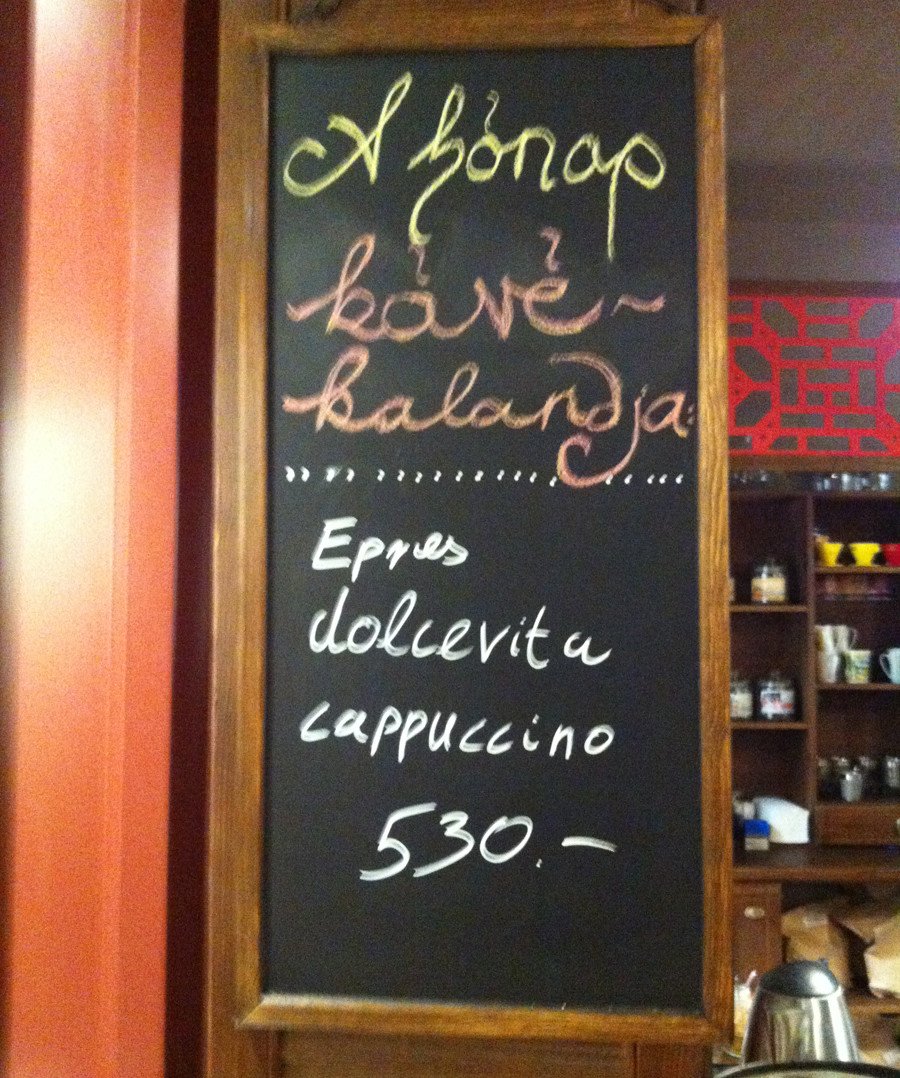 A hónap
kávé~
kalandja:
Epres
dolcevita
cappuccino
530.-